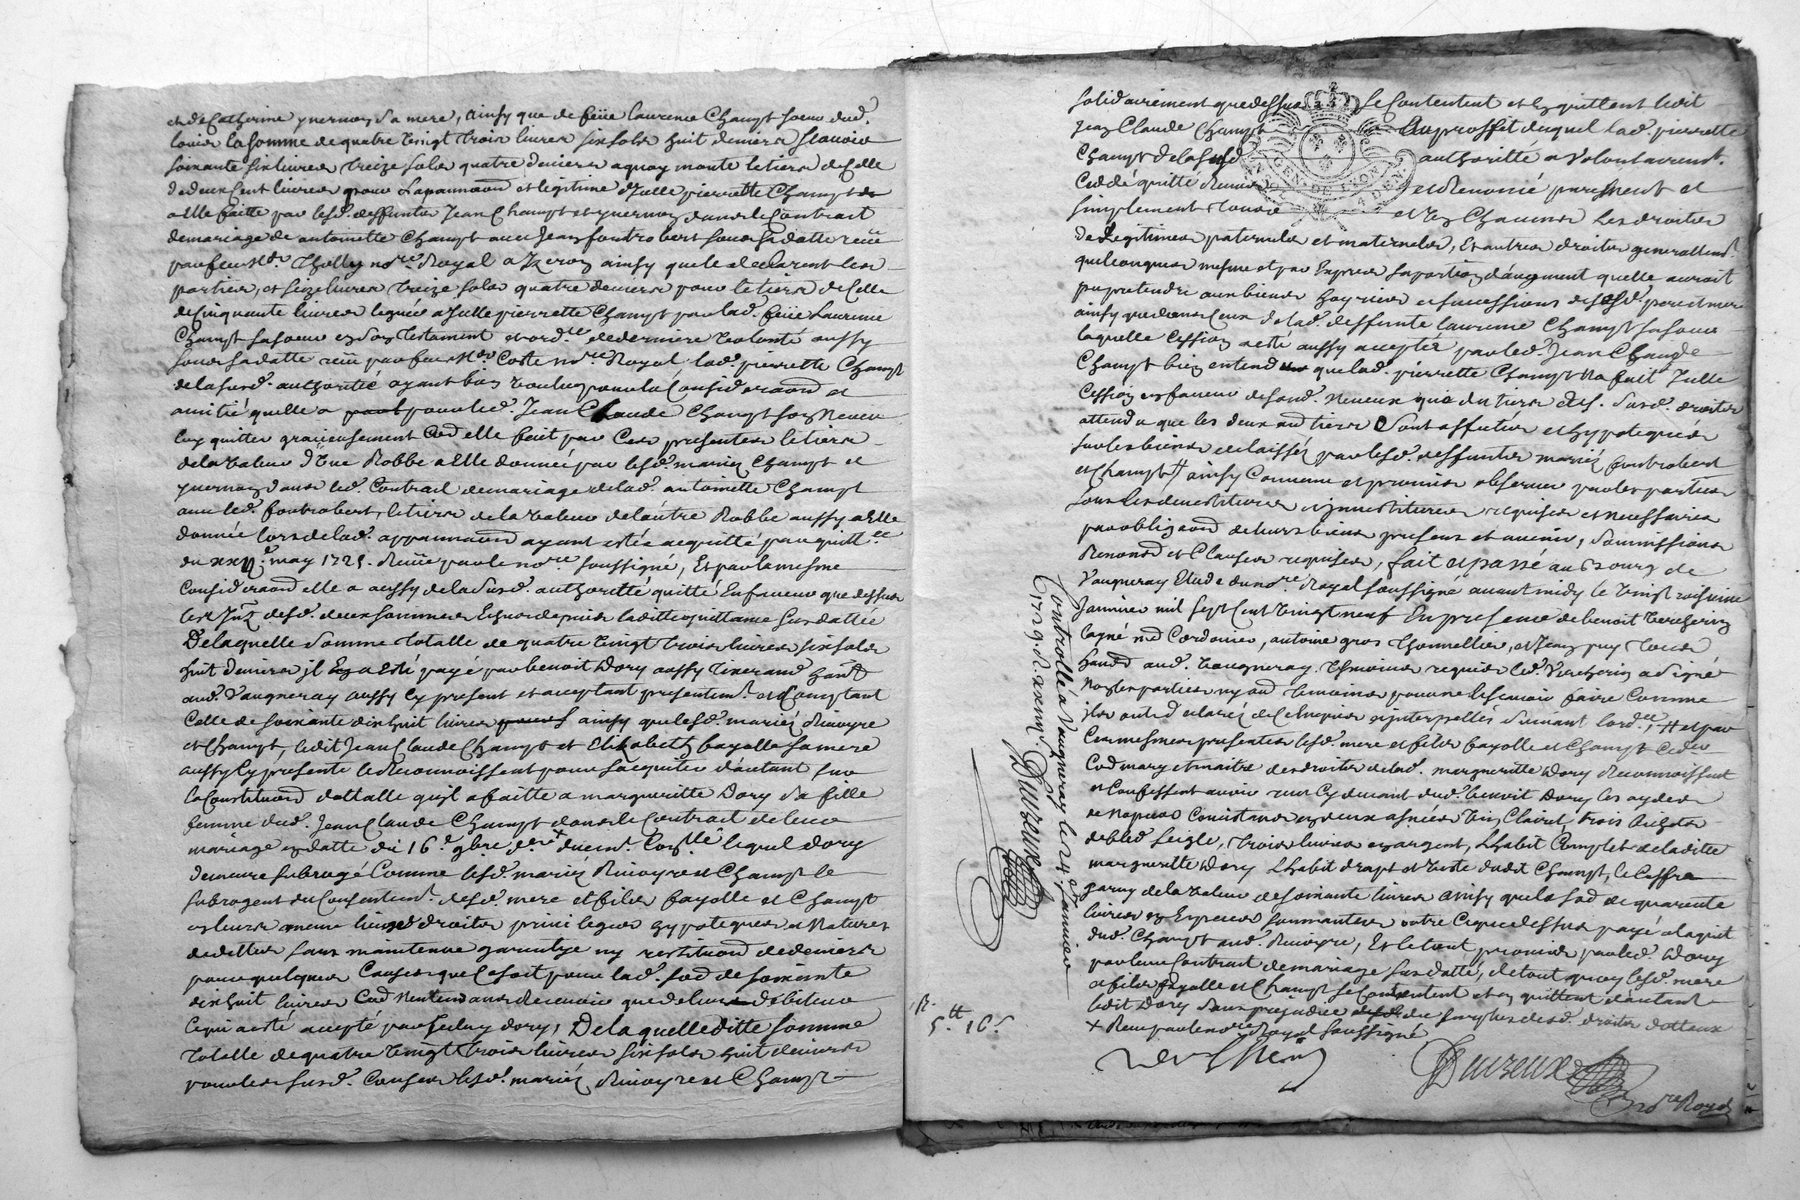 et de Catherine ynernoy sa mere, ainsy que de feüe laurence Champt soeur dud.
louis la somme de quatre vingt trois livres six sols huit deniers scavoir
soixante six livres treize sols quatre deniers a quoy monte le tiers de celle
de deux cent livres pour l'apannaōn et legitime d'jcelle pierrette Champt
a elle faitte par lesd. deffuntes Jean Champt et ynernoy dans le Contract
de mariage de antoinette Champt avec Jean fontrobert sous sa datte reçu
par feu Mr. Tholly nore. Royal a yzeron ainsy que le declarent les
parties, et seize livres treize sols quatre deniers pour le tiers de celle
de cinquante livres leguée a jcelle pierrette Champt par lad. feüe laurence
Champt sa soeur en son testament et ordce. de derniere volonté aussy
sous sa datte reçu par feu Mr. Coste nore. Royal, lad. pierrette Champt
de la susd. authorité ayant bien voulu pour la Consideraōn et
amitié quelle a pour led. Jean Claude Champt son Neveu
luy quitter gracieusement Cōe elle fait par Ces presentes le tiers
de la valeur d'une Robbe a elle donnée par lesd. mariez Champt et
ynernoy dans led. Contract de mariage de lad. antoinette Champt
avec led. fontrobert, le tiers de la valeur de l'autre Robbe aussy a elle
donnée lors de lad. appannaōn ayant estée acquitté par quittce.
du may 1725. Reçüe par le nore. soussigné, Et par la mesme
Consideraōn elle a aussy de la susd. authoritté quitté En faveur que dessus
les jntz. desd. deux sommes Echus depuis ladite quittance susdattée
De laquelle somme totalle de quatre vingt trois livres six sols
huit deniers jl En a esté payé par benoit Dory aussy tixerand habt.
aud. Vaugneray aussy Cy present et acceptant presentemt. et Comptant
Celle de soixante dix huit livres ainsy que lesd. mariez Rivoyre
et Champt, ledit Jean Claude Champt et Elizabeth fayolle sa mere
aussy Cy presente le Reconnoissent pour s'acquitter d'autant sur
la Constituōn dottalle qu'il a faitte a margueritte Dory sa fille
femme dud. Jean Claude Champt dans le Contract de leur
mariage en datte du 16e. 9bre. lequel dory
demeure subrogé Comme lesd. mariez Rivoyre et Champt le
subrogent du Consentemt. desd. mere et fils fayolle et Champt
a leurs mesme lieux droits privileges hypoteques et Natures
de dettes sans maintenue garantye ny restituōn de deniers
pour quelques Causes que Ce soit pour lad. sōe de soixante
dix huit livres Cōe N'entendans Recevoir que de leur debiteur
Ce qui a esté accepté par jceluy dory, De laquelle ditte somme
totalle de quatre vingt trois livres six sols huit deniers
pour les susd. Causes lesd. mariez Rivoyre et Champt
solidairement que dessus se Contentent et En quittent ledit
Jean Claude Champt Au proffit duquel lad. pierrette
Champt de la susd. authoritté a volontairemt.
Cedé quitté Remis et Renoncé purement et
simplement a tous et Un Chacuns les droits
de legitimes paternels et maternels, Et autres droits generallemt.
quelconques mesme et par Exprés sa portion d'augment quelle auroit
pu pretendre aux biens hoyries et successions desd. pere et mere
ainsy que dans Ceux de lad. deffunte laurence Champt sa soeur
laquelle Cession a esté aussy acceptée par led. Jean Claude
Champt bien entendu que lad. pierrette Champt N'a fait jcelle
Cession en faveur de sond. Neveu que du tiers desd. susd. droits
attendu que les deux autres tiers sont affectés et hypotequés
sur les biens delaissés par lesd. deffuntes mariez fontrobert
et Champt ainsy Convenu et promis observer par les parties
sous les demissions investitures requises et necessaires
par obligaōns de leurs biens presens et avenir, soumissions
Renonōns et Clauses requises, fait et passé au bourg de
Vaugneray Etude du nore. Royal soussigné avant midy le vingt troisieme
Janvier mil sept Cent vingt neuf En presence de benoit
lagné md Cordonnier, antoine gros thonnellier, et Jean puy
habts aud. vaugneray temoins requis led. a signé
Non les parties ny autre temoins pour ne le scavoir faire Comme
jls ont declaré de Ce Enquis et jnterpellés suivant l'ordce., # et par
Ces mesmes presentes lesd. mere et fils fayolle et Champt
Cōe mary et maitre des droits de lad. margueritte Dory Reconnoissent
et Confessent avoir reçu Cy devant dud. benoit Dory les
de Noposes Consistans en deux asnées vin Clairet, trois bichets
de bled seigle, trois livres en argent, l'habit Complet de laditte
margueritte Dory l'habit drap et veste dudit Champt, le Coffre
garny de la valeur de soixante livres ainsy que la sōe de quarente
livres en Especes sonnantes outre Ce que dessus payé a l'aquit
dud. Champt aud. Rivoyre, Et le tout promis par led. Dory
par leur Contract de mariage susdatté, de tout quoy lesd. mere
et fils fayolle et Champt se Contentent et en quittent d'autant
ledit Dory sans prejudice du surplus desd. droits dotteaux
+ Reçu par le nore. Royal soussigné
Duzeux
nore Royal
Controllé a Vaugneray le 24e. Janvier
1729. R.
Duzeux
R.
5tt 16s
GEN. DE LYON
4 DEN